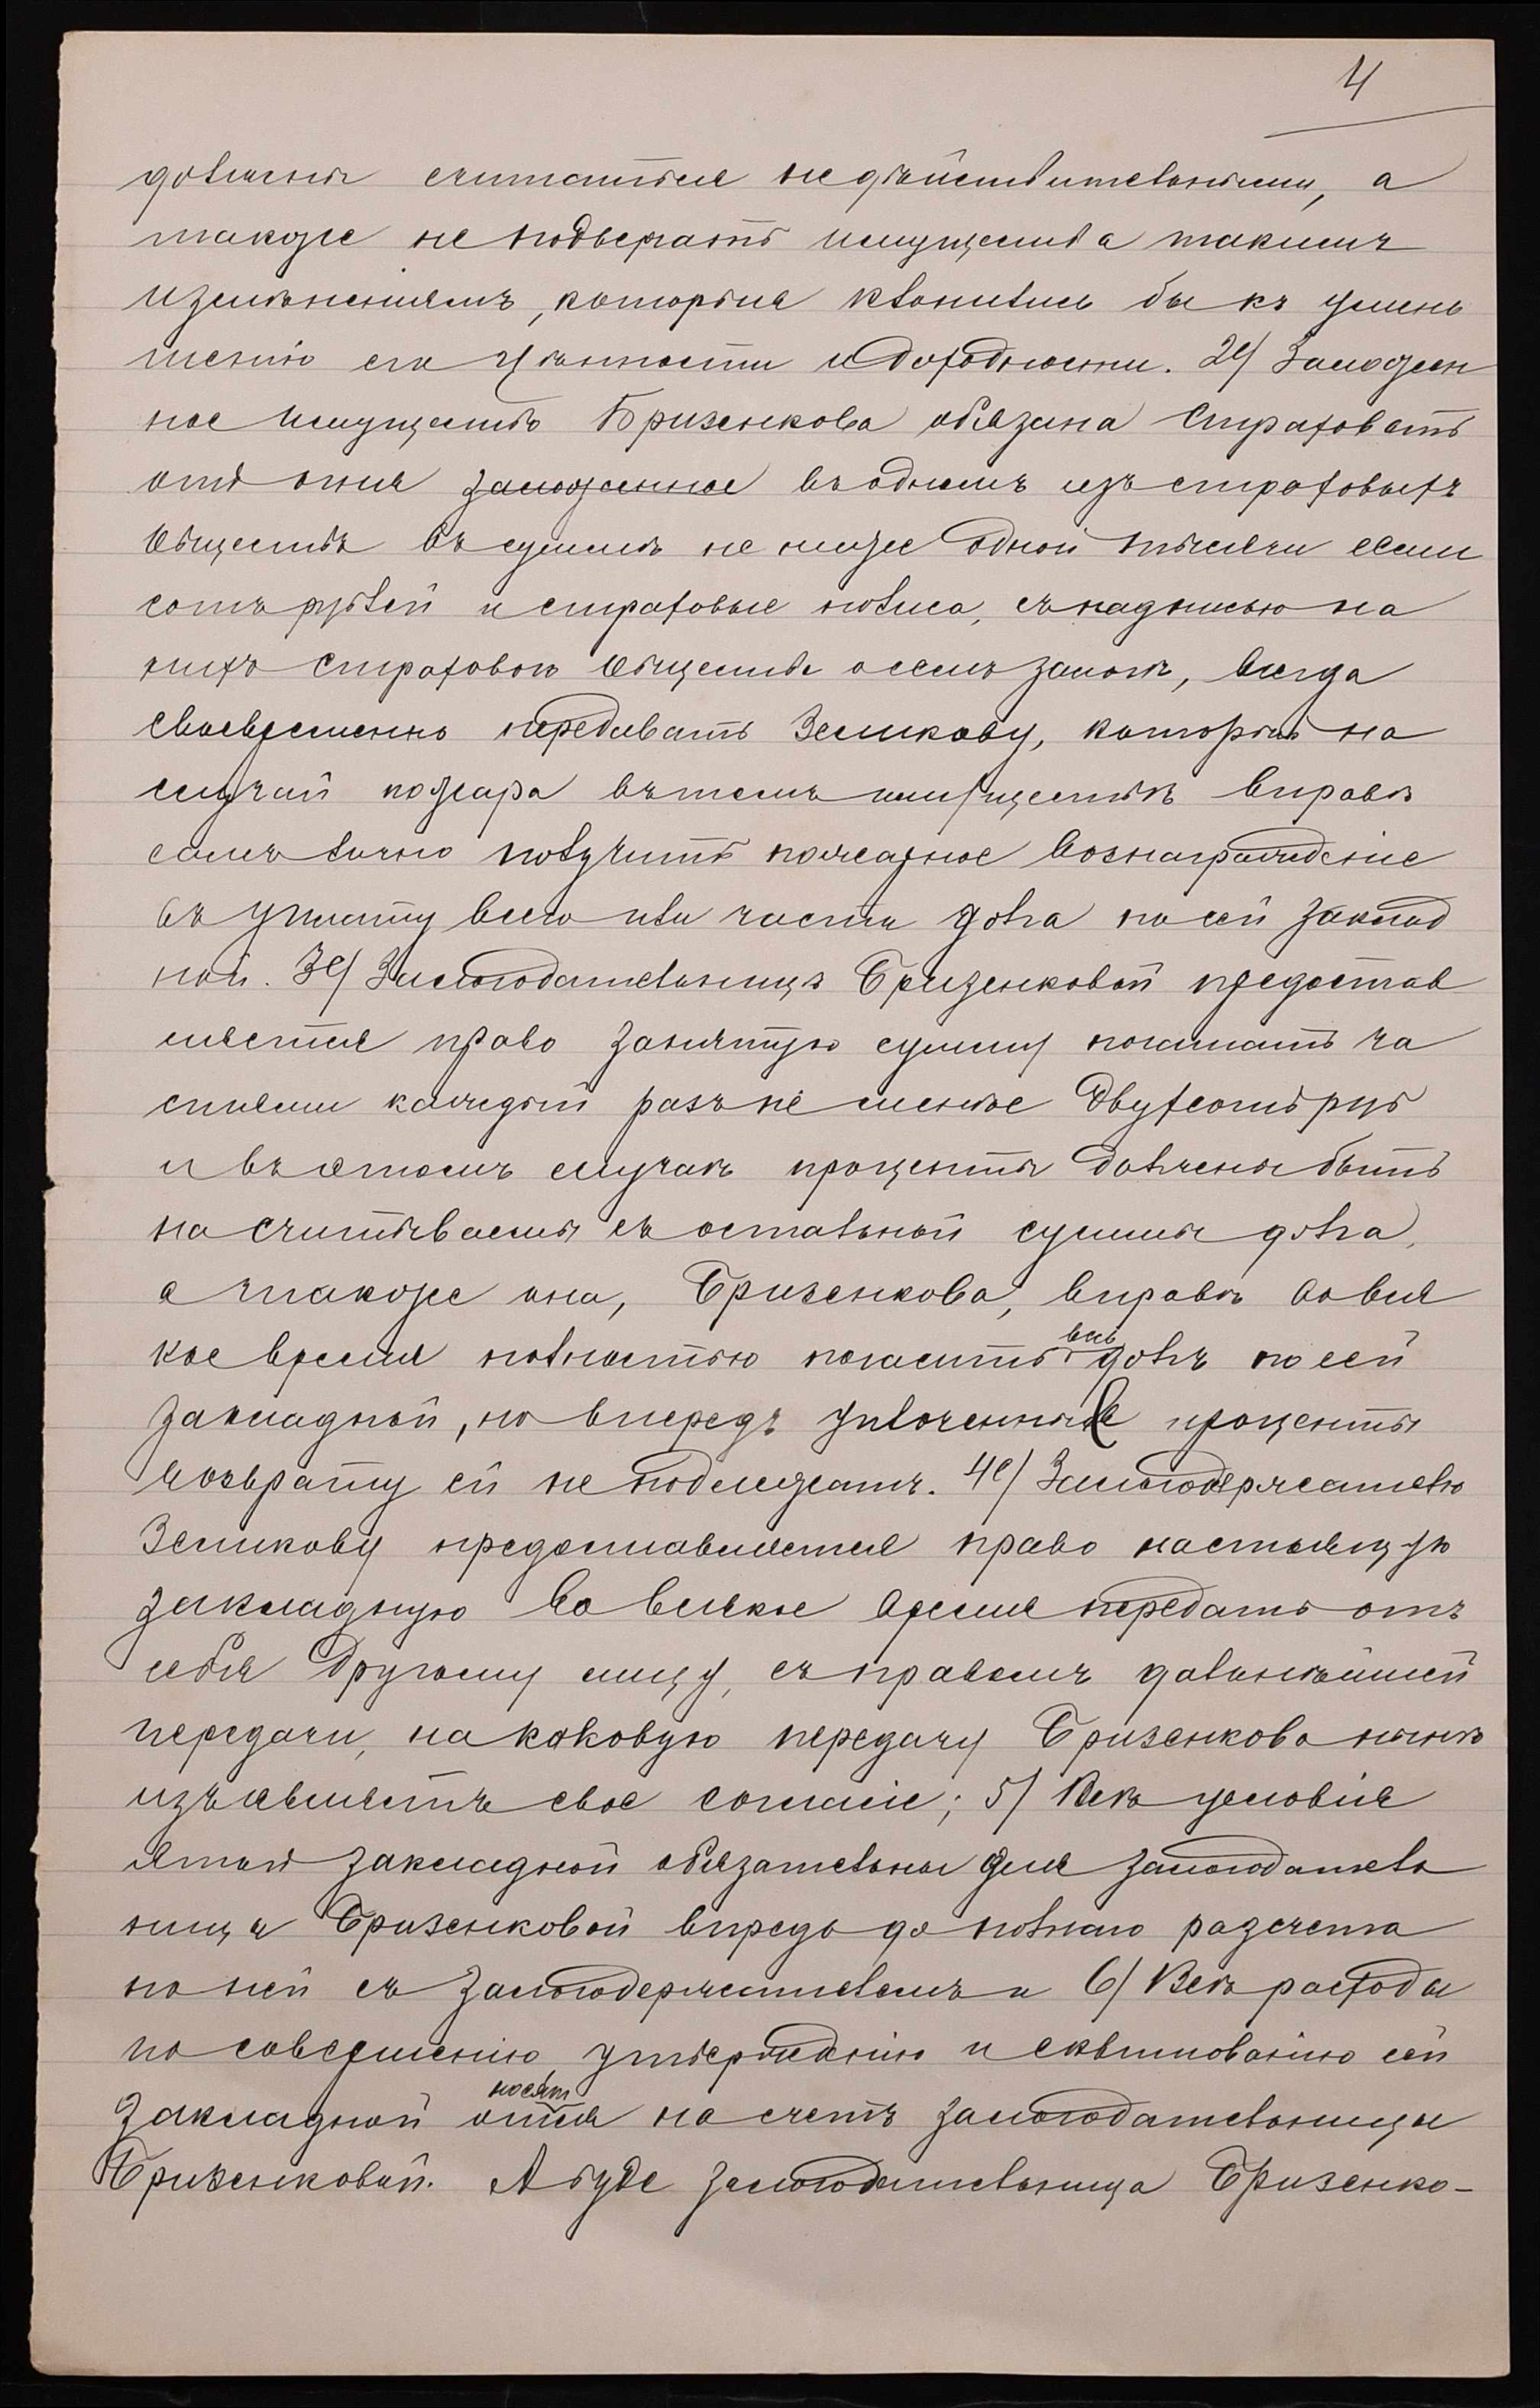 4
должны считаться недѣйствительными, а
также не подвергать имущества такимъ
измѣненіямъ, которыя клонились бы къ умень
шенію его цѣнности и доходности. 2е/ Заложен
ное имущество Бризенкова обязана страховать
отъ огня заложенное въ одномъ изъ страховыхъ
Обществъ въ суммѣ не ниже одной тысячи семи
сотъ рублей и страховые полиса, съ надписью на
нихъ Страховаго Общества о семъ залогѣ, всегда
своевременно передавать Земикову, который на
случай пожара въ томъ имуществѣ вправѣ
самъ лично получить пожарное вознагражденіе
въ уплату всего или части долга по сей заклад
ной. 3е/ Залогодательницѣ Бризенковой предостав
ляется право занятую сумму погашать ча
стями каждый разъ не менѣе двухсотъ руб
и въ этомъ случаѣ проценты должны быть
насчитываемы съ остальной суммы долга,
а также она, Бризенкова, вправѣ во вся
кое время полностью погасить весь долгъ по сей
закладной, но впередъ уплоченные проценты
возврату ей не подлежатъ. 4е/ Залогодержателю
Земикову предоставляется право настоящую
закладную во всякое время передать отъ
себя другому лицу, съ правомъ дальнѣйшей
передачи, на каковую передачу Бризенкова нынѣ
изъявляетъ свое согласіе; 5/ Всѣ условія
этой закладной обязательны для залогодатель
ницы Бризенковой впредь до полнаго разсчета
по ней съ залогодержателемъ и 6/ Всѣ расходы
по совершенію, утвержденію и сквитованію сей
закладной относятся на счетъ залогодательницы
Бризенковой. А буде залогодательница Бризенко-